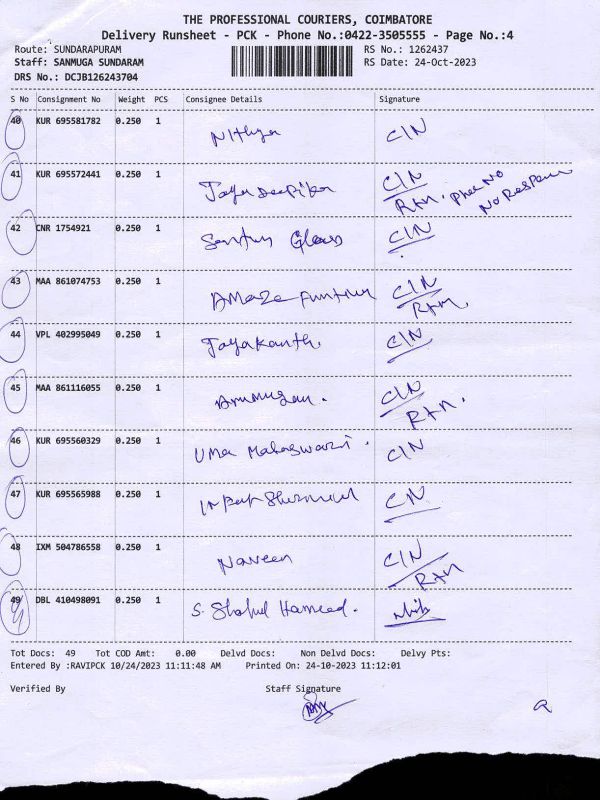 THE PROFESSIONAL COURIERS, COIMBATORE
Delivery Runsheet - PCK - Phone No.:0422-3505555 - Page No.:4
Route: SUNDARAPURAM RS No.: 1262437
Staff: SANMUGA SUNDARAM RS Date: 24-Oct-2023
DRS No.: DCJB126243704
S No Consignment No Weight PCS Consignee Details Signature
40 KUR 695581782 0.250 1 Nithya C/N
41 KUR 695572441 0.250 1 Jaya Deepika C/N
RTN. Phee No
No Respon
42 CNR 1754921 0.250 1 Santhus Glass C/N
43 MAA 861074753 0.250 1 Amaze C/N
RTN.
44 VPL 402995049 0.250 1 Jayakanth. C/N
45 MAA 861116055 0.250 1 Arumugam. C/N
RTN.
46 KUR 695560329 0.250 1 Uma Maheswari. C/N
47 KUR 695565988 0.250 1 C/N
48 IXM 504786558 0.250 1 Naveen C/N
RTN
49 DBL 410498091 0.250 1 S. Shahul Hameed.
Tot Docs: 49 Tot COD Amt: 0.00 Delvd Docs: Non Delvd Docs: Delvy Pts:
Entered By :RAVIPCK 10/24/2023 11:11:48 AM Printed On: 24-10-2023 11:12:01
Verified By Staff Signature